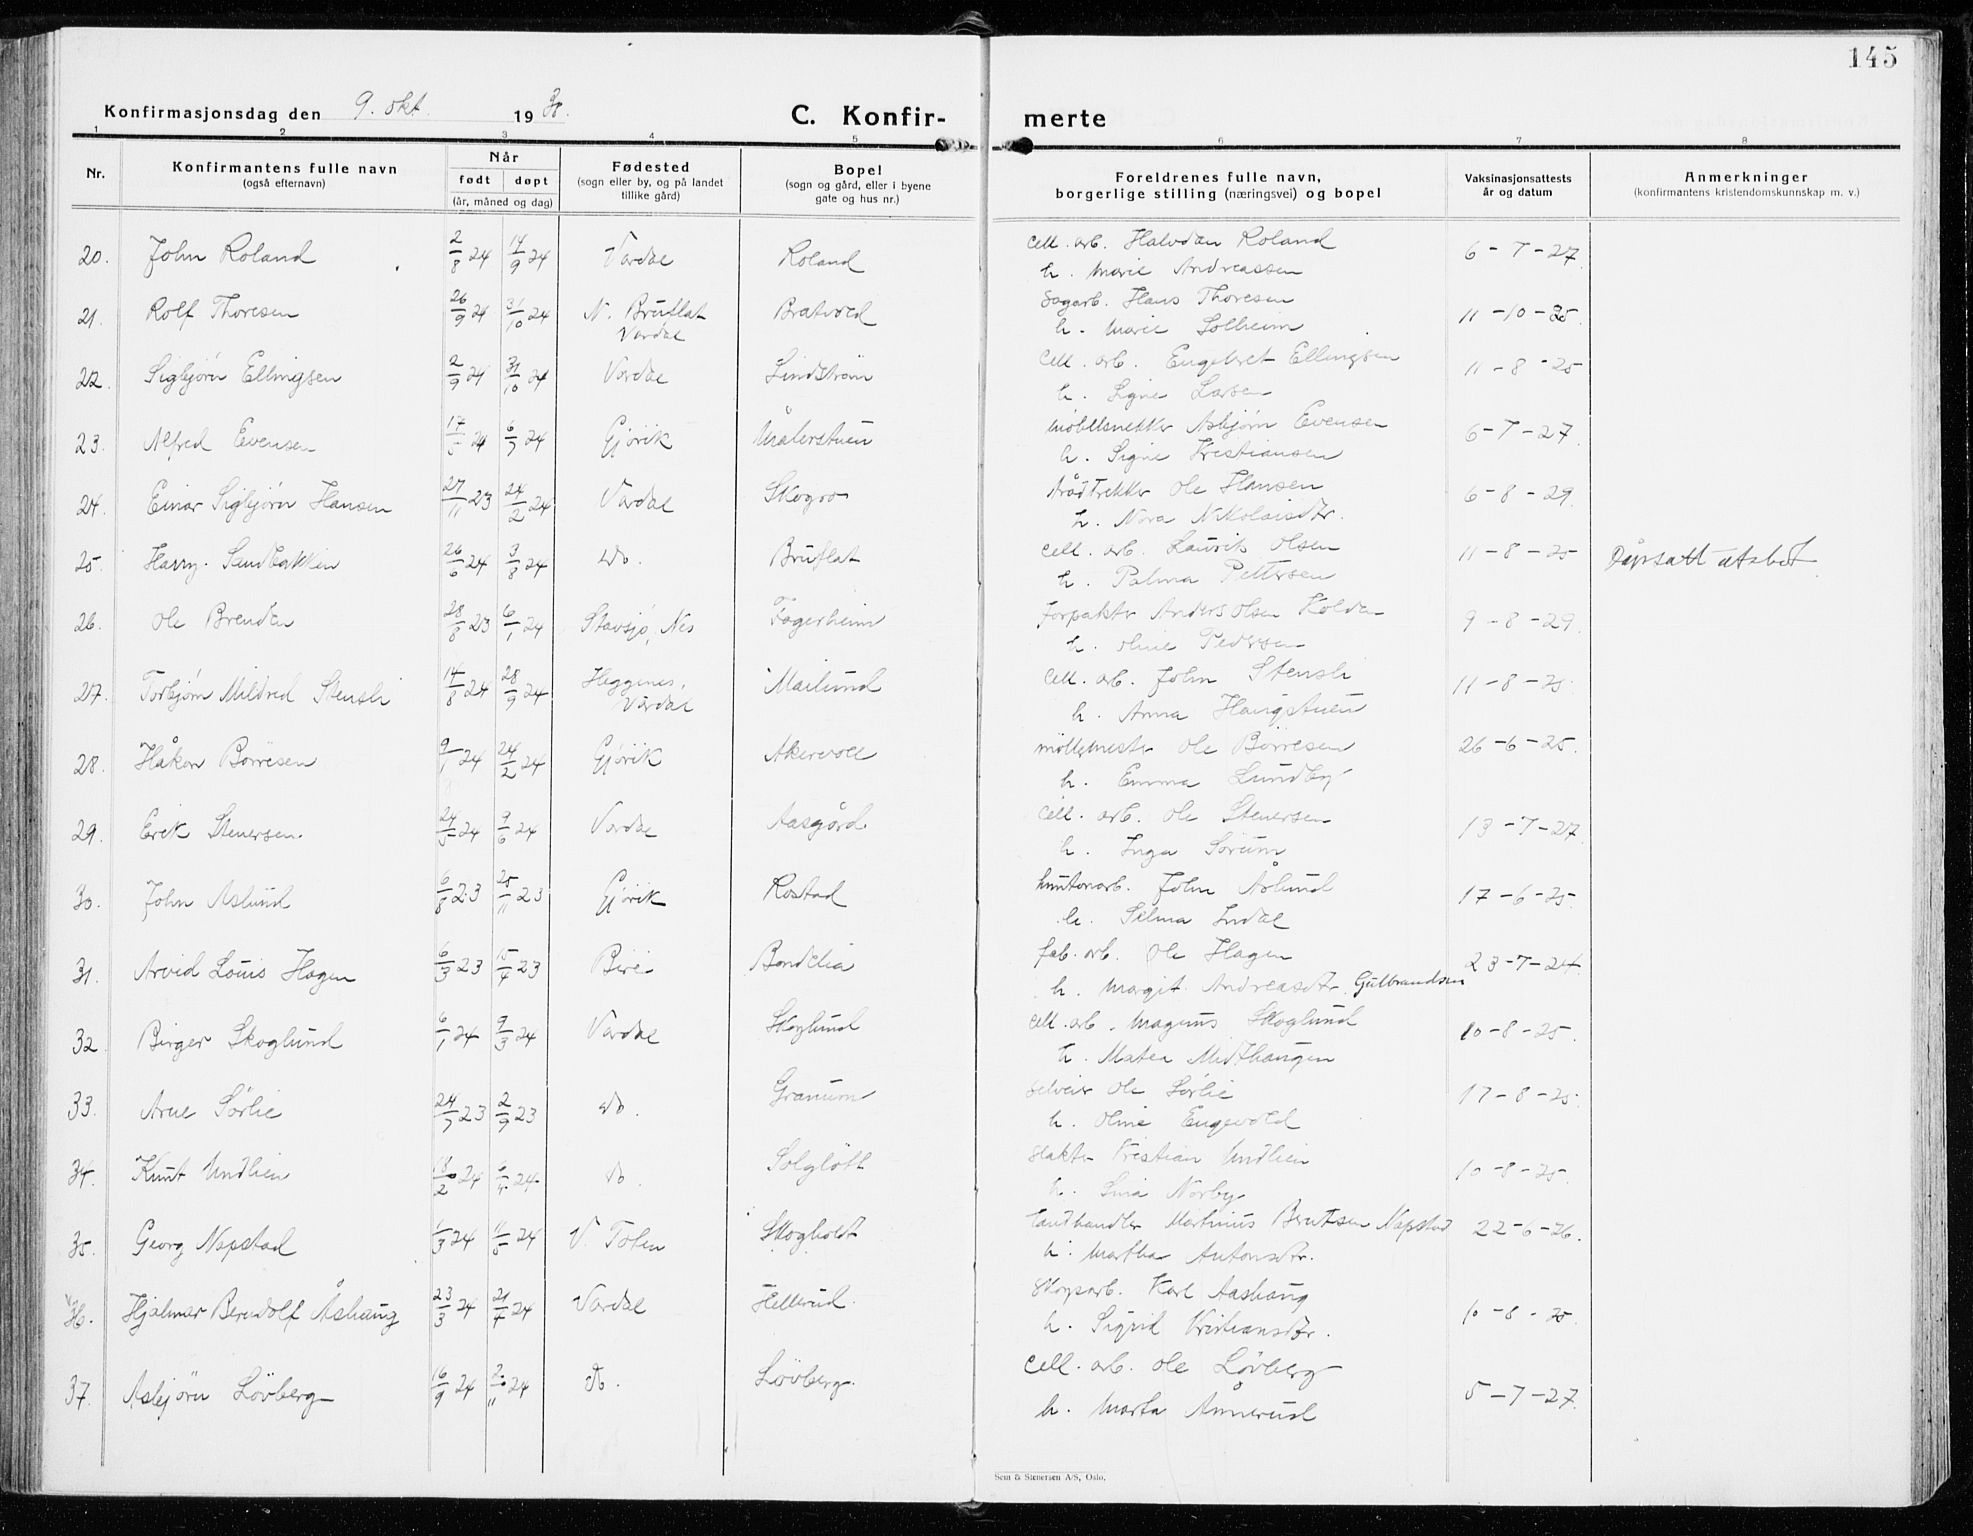 145
Konfirmasjonsdag den 9. okt. 1938.
C. Konfir-
merte
1 2 3 4 5 6 7 8
Nr.
Konfirmantens fulle navn
(også efternavn)
Når
født døpt
(år, måned og dag)
Fødested
(sogn eller by, og på landet
tillike gård)
Bopel
(sogn og gård, eller i byene
gate og hus nr.)
Foreldrenes fulle navn,
borgerlige stilling (næringsvei) og bopel
Vaksinasjonsattests
år og datum
Anmerkninger
(konfirmantens kristendomskunnskap m. v.)
20. John Roland 2/8 24 14/9 24 Vardal Roland cell. arb. Halvdan Roland 6-7-27.
h. Marie Andreassen
21. Rolf Thoresen 26/9 24 31/10 24 N. Bruflat Bratvold Sagarb. Hans Thoresen 11-10-35.
Vardal h. Marie Solheim
22. Sigbjørn Ellingsen 2/9 24 31/10 24 Vardal Lindstrøm Cell. arb. Engebret Ellingsen 11-8-25
h. Signe Larsen
23. Alfred Evensen 17/5 24 6/7 24 Gjøvik Målerstuen Møbelsnekker Asbjørn Evensen 6-7-27.
h. Signe Kristiansen
24. Einar Sigbjørn Hansen 27/11 23 24/2 24 Vardal Skogro trådtrekker Ole Hansen 6-8-29.
h. Nora Nikolaisdtr.
25. Harry Sandbakken 26/6 24 3/8 24 do. Bruflat cell. arb. Laurits Olsen 11-8-25 Dåpsatt utsted
h. Palma Pettersen
26. Ole Brendan 28/8 23 6/1 24 Stavsjø, Nes Fagerheim forpakter Anders Olsen Koldan 9-8-29.
h. Oline Pedersen
27. Torbjørn Mildred Stensli 14/8 24 28/9 24 Heggenes, Mailund cell. arb. John Stensli 11-8-25.
Vardal h. Anna Haugstuen
28. Håkon Børresen 9/1 24 24/2 24 Gjøvik Akervoll møllemester Ole Børresen 26-6-25.
h. Emma Lundby
29. Erik Stenersen 24/5 24 9/6 24 Vardal Aasgård cell. arb. Ole Stenersen 13-7-27
h. Inga Sørum
30. John Aslund 6/8 23 25/11 23 Gjøvik Rostad huntonarb. John Aslund 17-6-25.
h. Selma Indal
31. Arvid Louis Hagen 6/3 23 15/4 23 Biri Bondelia fab. arb. Ole Hagen 23-7-24.
h. Margit Andreasdtr. Gulbrandsen
32. Birger Skoglund 6/1 24 9/3 24 Vardal Skoglund cell. arb. Magnus Skoglund 10-8-25.
h. Matea Midthaugen
33. Arne Sørlie 24/7 23 2/9 23 do. Granum selveier Ole Sørlie 17-8-25.
h. Oline Engevold
34. Knut Undlien 18/2 24 6/4 24 do. Solgløtt slakter Kristian Undlien 10-8-25.
h. Lina Norby
35. Georg Napstad 1/3 24 11/5 24 V. Toten Skogholdt landhandler Martinus Berntsen Napstad 22-6-26.
h. Martha Antonsdtr.
36. Hjalmar Berndolf Åshaug 23/3 24 21/7 24 Vardal Hellerud. Skogsarb. Karl Aashaug 10-8-25.
h. Sigrid Kristiansdtr.
37. Asbjørn Løvberg 16/9 24 2/11 24 do. Løvberg. Cell. arb. Ole Løvberg 5-7-27.
h. Marta Annerud
Sem & Stenersen A/S, Oslo.